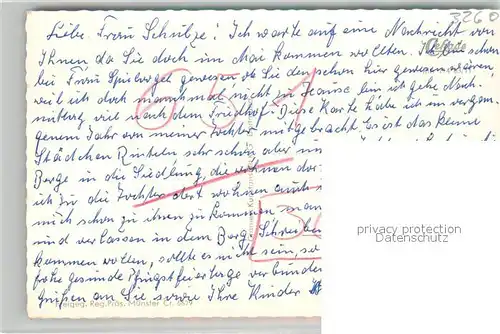 Liebe Frau Schulze! Ich warte auf eine Nachricht von
Ihnen da Sie doch im Mai kommen wollten. Ich bin schon
bei Frau gewesen ob Sie den schon hier gewesen wären
weil ich doch manchmal nicht zu Hause bin ich gehe Nach-
mittag viel nach dem Friedhof. Diese Karte habe ich im vergan-
genem Jahr von meiner Tochter mitgebracht. Es ist das kleine
Städchen Rinteln sehr schön aber
Berge in die Siedlung, die wohnen dor
ich zu die Tochter dort wohnen auch
mich schon zu ihnen zu kommen man
und verlassen in dem Berg. Schreiben
kommen wollen, sollte es nicht sein, so
frohe gesunde Pfingstfeiertage verbunden
Grüßen an Sie, sowie Ihre Kinder
3260
privacy protection
Datenschutz
Freigeg. Reg. Präs. Münster Cr. 6679